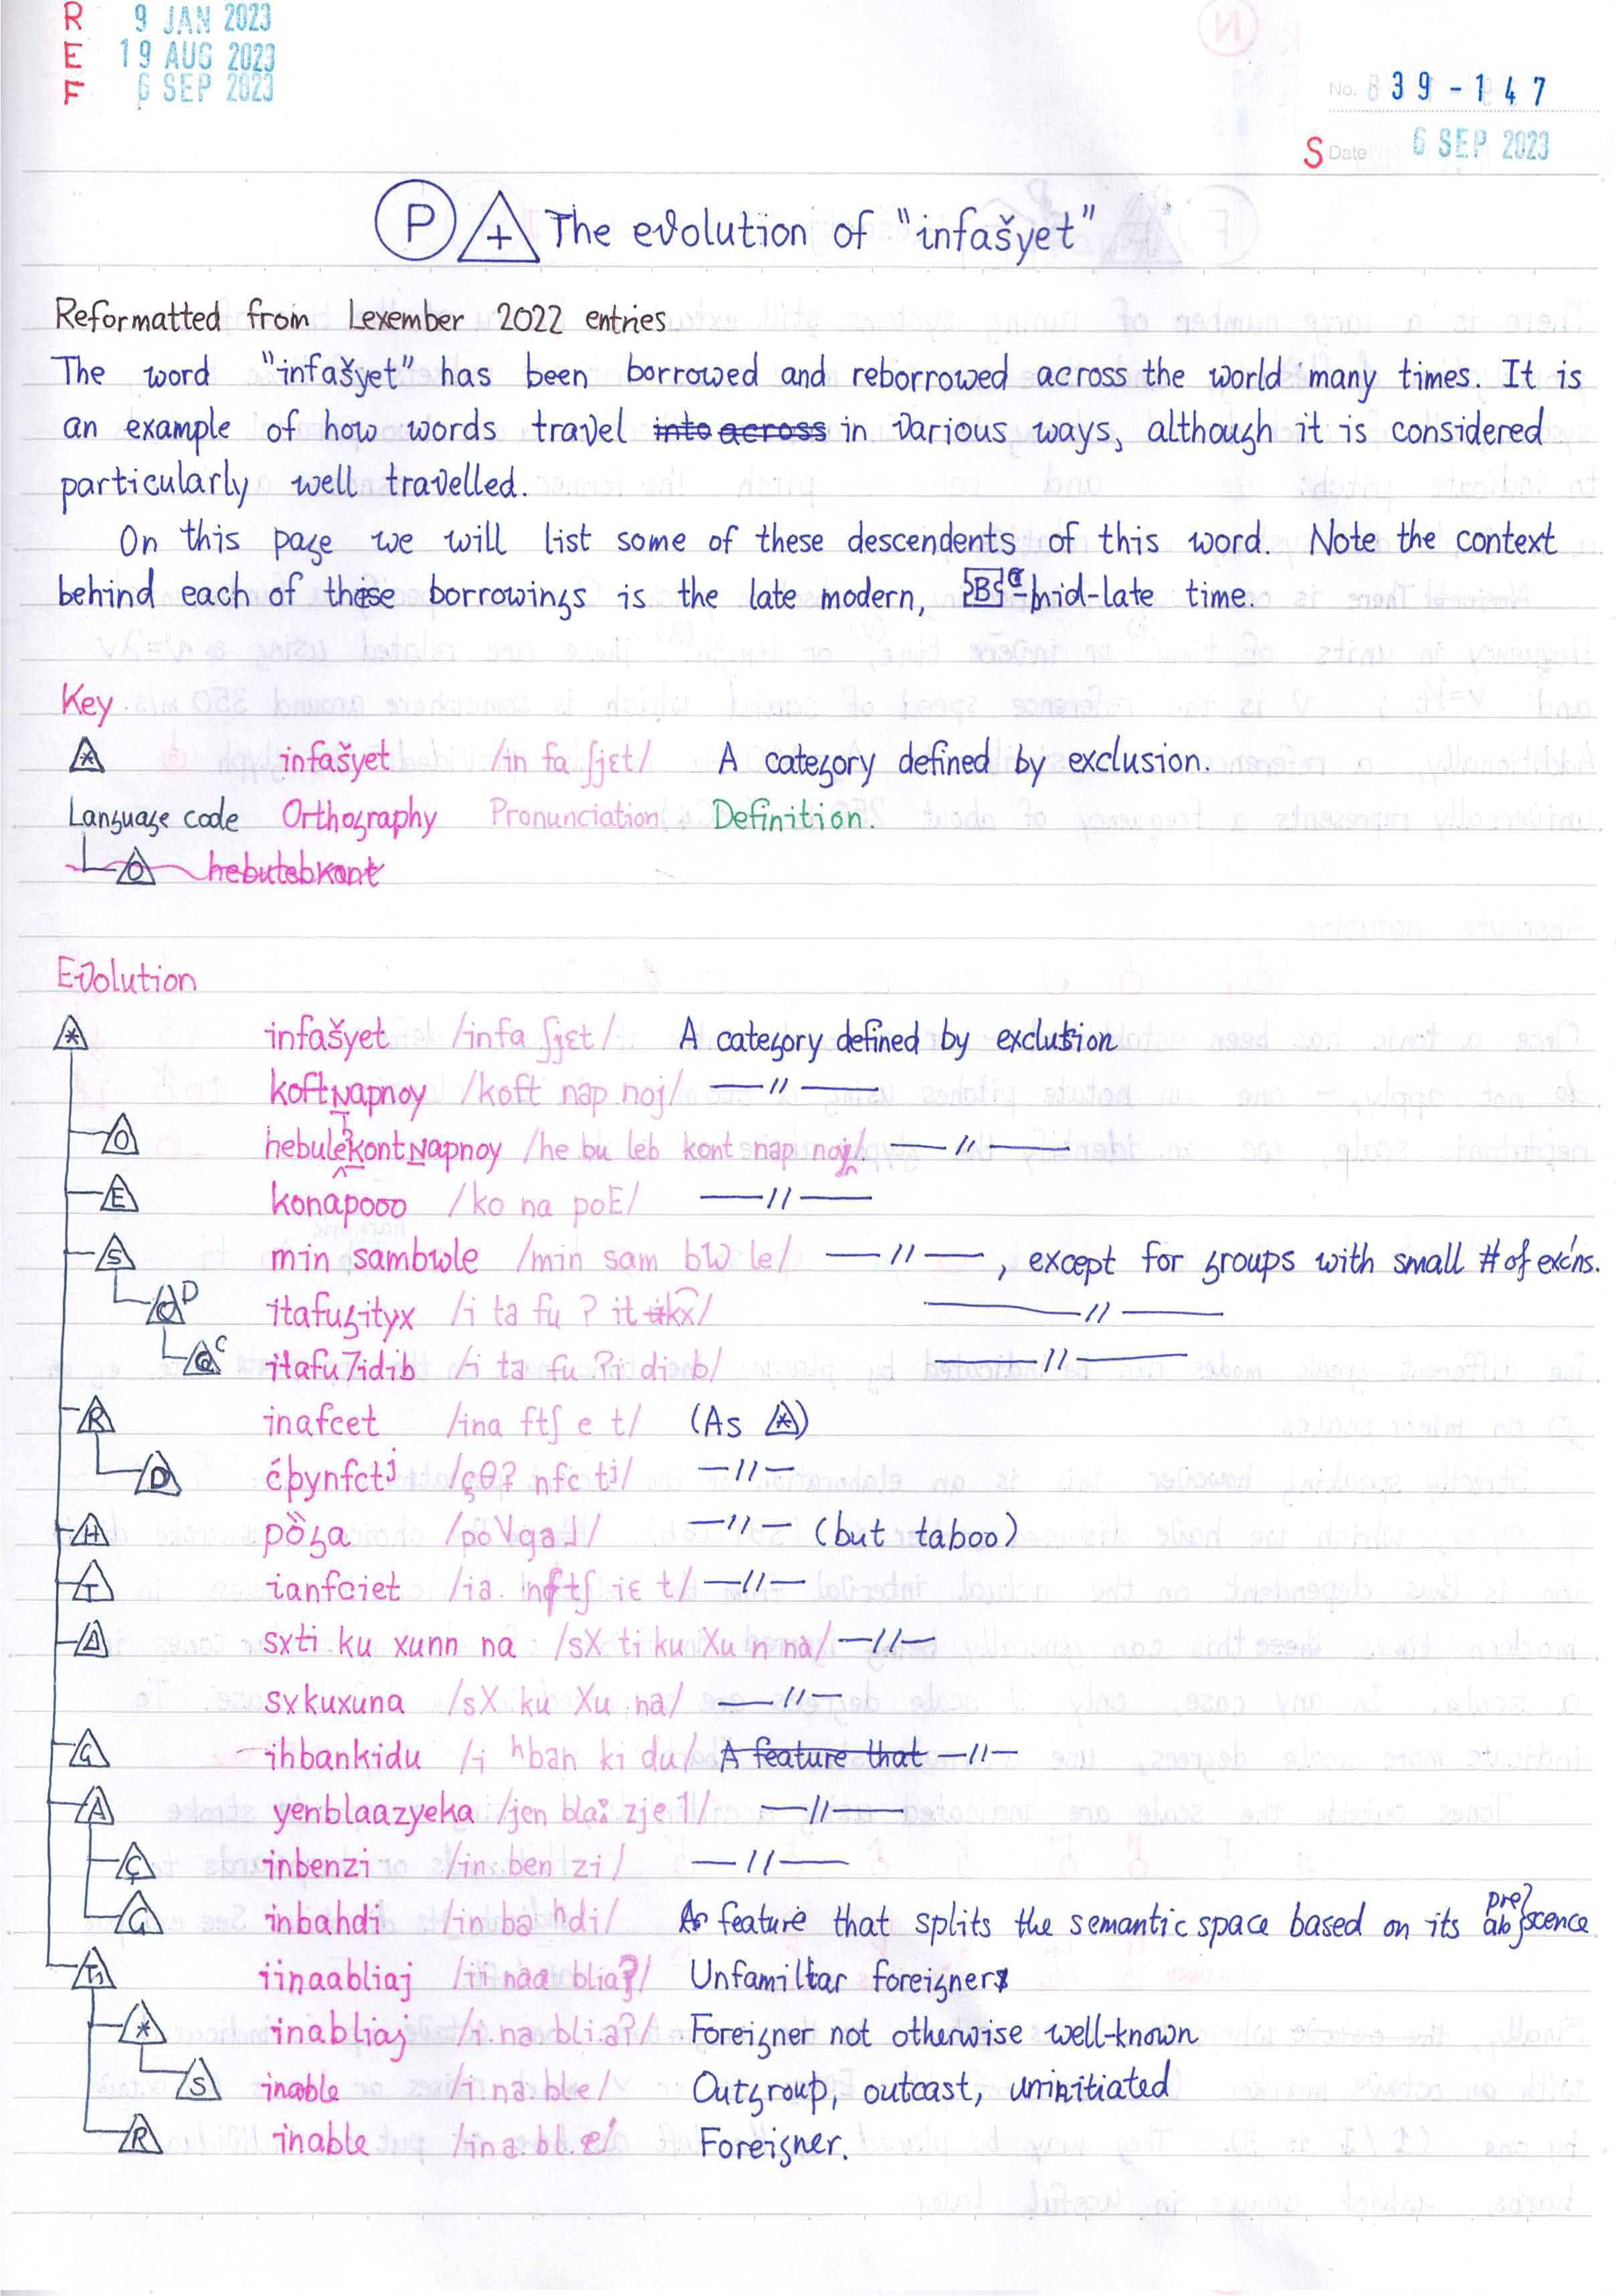 R 9 JAN 2023
E 19 AUG 2023
F 6 SEP 2023
No. 839-147
S Date 6 SEP 2023
P + The evolution of "infašyet"
Reformatted from Lexember 2022 entries
The word "infašyet" has been borrowed and reborrowed across the world many times. It is
an example of how words travel into across in various ways, although it is considered
particularly well travelled.
On this page we will list some of these descendents of this word. Note the context
behind each of these borrowings is the late modern, mid-late time.
Key
* infašyet /in fa ʃjɛt/ A category defined by exclusion.
Language code Orthography Pronunciation Definition.
O hebutebkont
Evolution
* infašyet /in fa ʃjɛt/ A category defined by exclusion
koftnapnoy /koft nap noj/ —〃—
O hebulebkontnapnoy /he bu leb kont nap noj/ —〃—
E konapooo /ko na poE/ —〃—
S min sambwle /min sam bW le/ —〃—, except for groups with small # of exc'ns.
D itafugityx /i ta fu ʔ it kx/ —〃—
C itafu7idib /i ta fu ʔi di b/ —〃—
R inafcet /ina ftʃ e t/ (As *)
D ćþynfctʲ /çθʔ nfc tʲ/ —〃—
H pöga /po\ga˩/ —〃— (but taboo)
T ianfciet /ia nftʃ iɛ t/ —〃—
Δ sxti ku xunn na /sX ti ku Xu n na/ —〃—
sxkuxuna /sX ku Xu na/ —〃—
G ihbankidu /i ʰban ki du/ A feature that —〃—
A yenblaazyeka /jen blaː zje˥/ —〃—
Ç inbenzi /in ben zi/ —〃—
G inbahdi /in ba ʰdi/ A feature that splits the semantic space based on its pre/abscence
Th iinaabliaj /ii naa bliaʔ/ Unfamiliar foreigner
* inabliaj /i na bli aʔ/ Foreigner not otherwise well-known
S inable /i na ble/ Outgroup, outcast, uninitiated
R inable /in a bl e/ Foreigner.